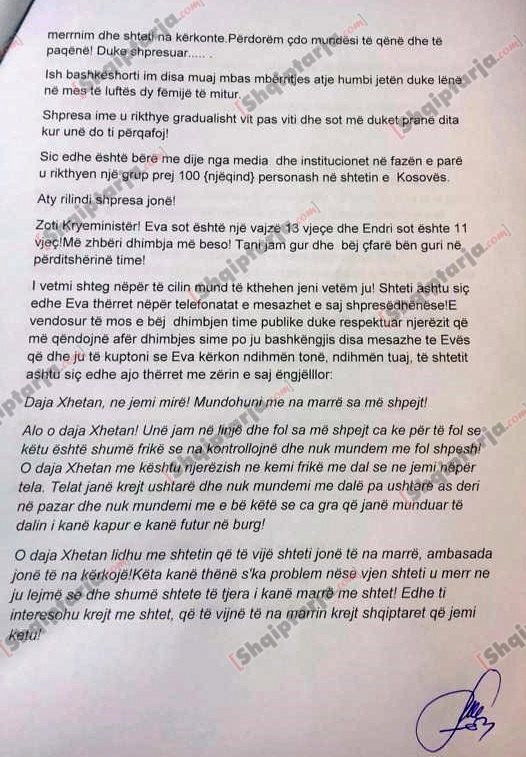 merrnim dhe shteti na kërkonte.Përdorëm çdo mundësi të qënë dhe të
paqënë! Duke shpresuar.....  .
Ish bashkëshorti im disa muaj mbas mbërritjes atje humbi jetën duke lënë
në mes të luftës dy fëmijë të mitur.
Shpresa ime u rikthye gradualisht vit pas viti dhe sot më duket pranë dita
kur unë do ti përqafoj!
Sic edhe është bërë me dije nga media  dhe institucionet në fazën e parë
u rikthyen një grup prej 100 {njëqind} personash në shtetin e  Kosovës.
Aty rilindi shpresa jonë!
Zoti Kryeministër! Eva sot është një vajzë 13 vjeçe dhe Endri sot ështe 11
vjeç!Më zhbëri dhimbja më beso! Tani jam gur dhe  bëj çfarë bën guri në
përditshërinë time!
I vetmi shteg nëpër të cilin mund të kthehen jeni vetëm ju! Shteti ashtu siç
edhe Eva thërret nëpër telefonatat e mesazhet e saj shpresëdhënëse!E
vendosur të mos e bëj  dhimbjen time publike duke respektuar njerëzit që
më qëndojnë afër dhimbjes sime po ju bashkëngjis disa mesazhe te Evës
që dhe ju të kuptoni se Eva kërkon ndihmën tonë, ndihmën tuaj, të shtetit
ashtu siç edhe ajo thërret me zërin e saj ëngjëlllor:
Daja Xhetan, ne jemi mirë! Mundohuni me na marrë sa më shpejt!
Alo o daja Xhetan! Unë jam në linjë dhe fol sa më shpejt ca ke për të fol se
këtu është shumë frikë se na kontrollojnë dhe nuk mundem me fol shpesh!
O daja Xhetan me kështu njerëzish ne kemi frikë me dal se ne jemi nëpër
tela. Telat janë krejt ushtarë dhe nuk mundemi me dalë pa ushtarë as deri
në pazar dhe nuk mundemi me e bë këtë se ca gra që janë munduar të
dalin i kanë kapur e kanë futur në burg!
O daja Xhetan lidhu me shtetin që të vijë shteti jonë të na marrë, ambasada
jonë të na kërkojë!Këta kanë thënë s'ka problem nëse vjen shteti u merr ne
ju lejmë se dhe shumë shtete të tjera i kanë marrë me shtet! Edhe ti
interesohu krejt me shtet, që të vijnë të na marrin krejt shqiptaret që jemi
këtu!
[Shqiptarja.com]